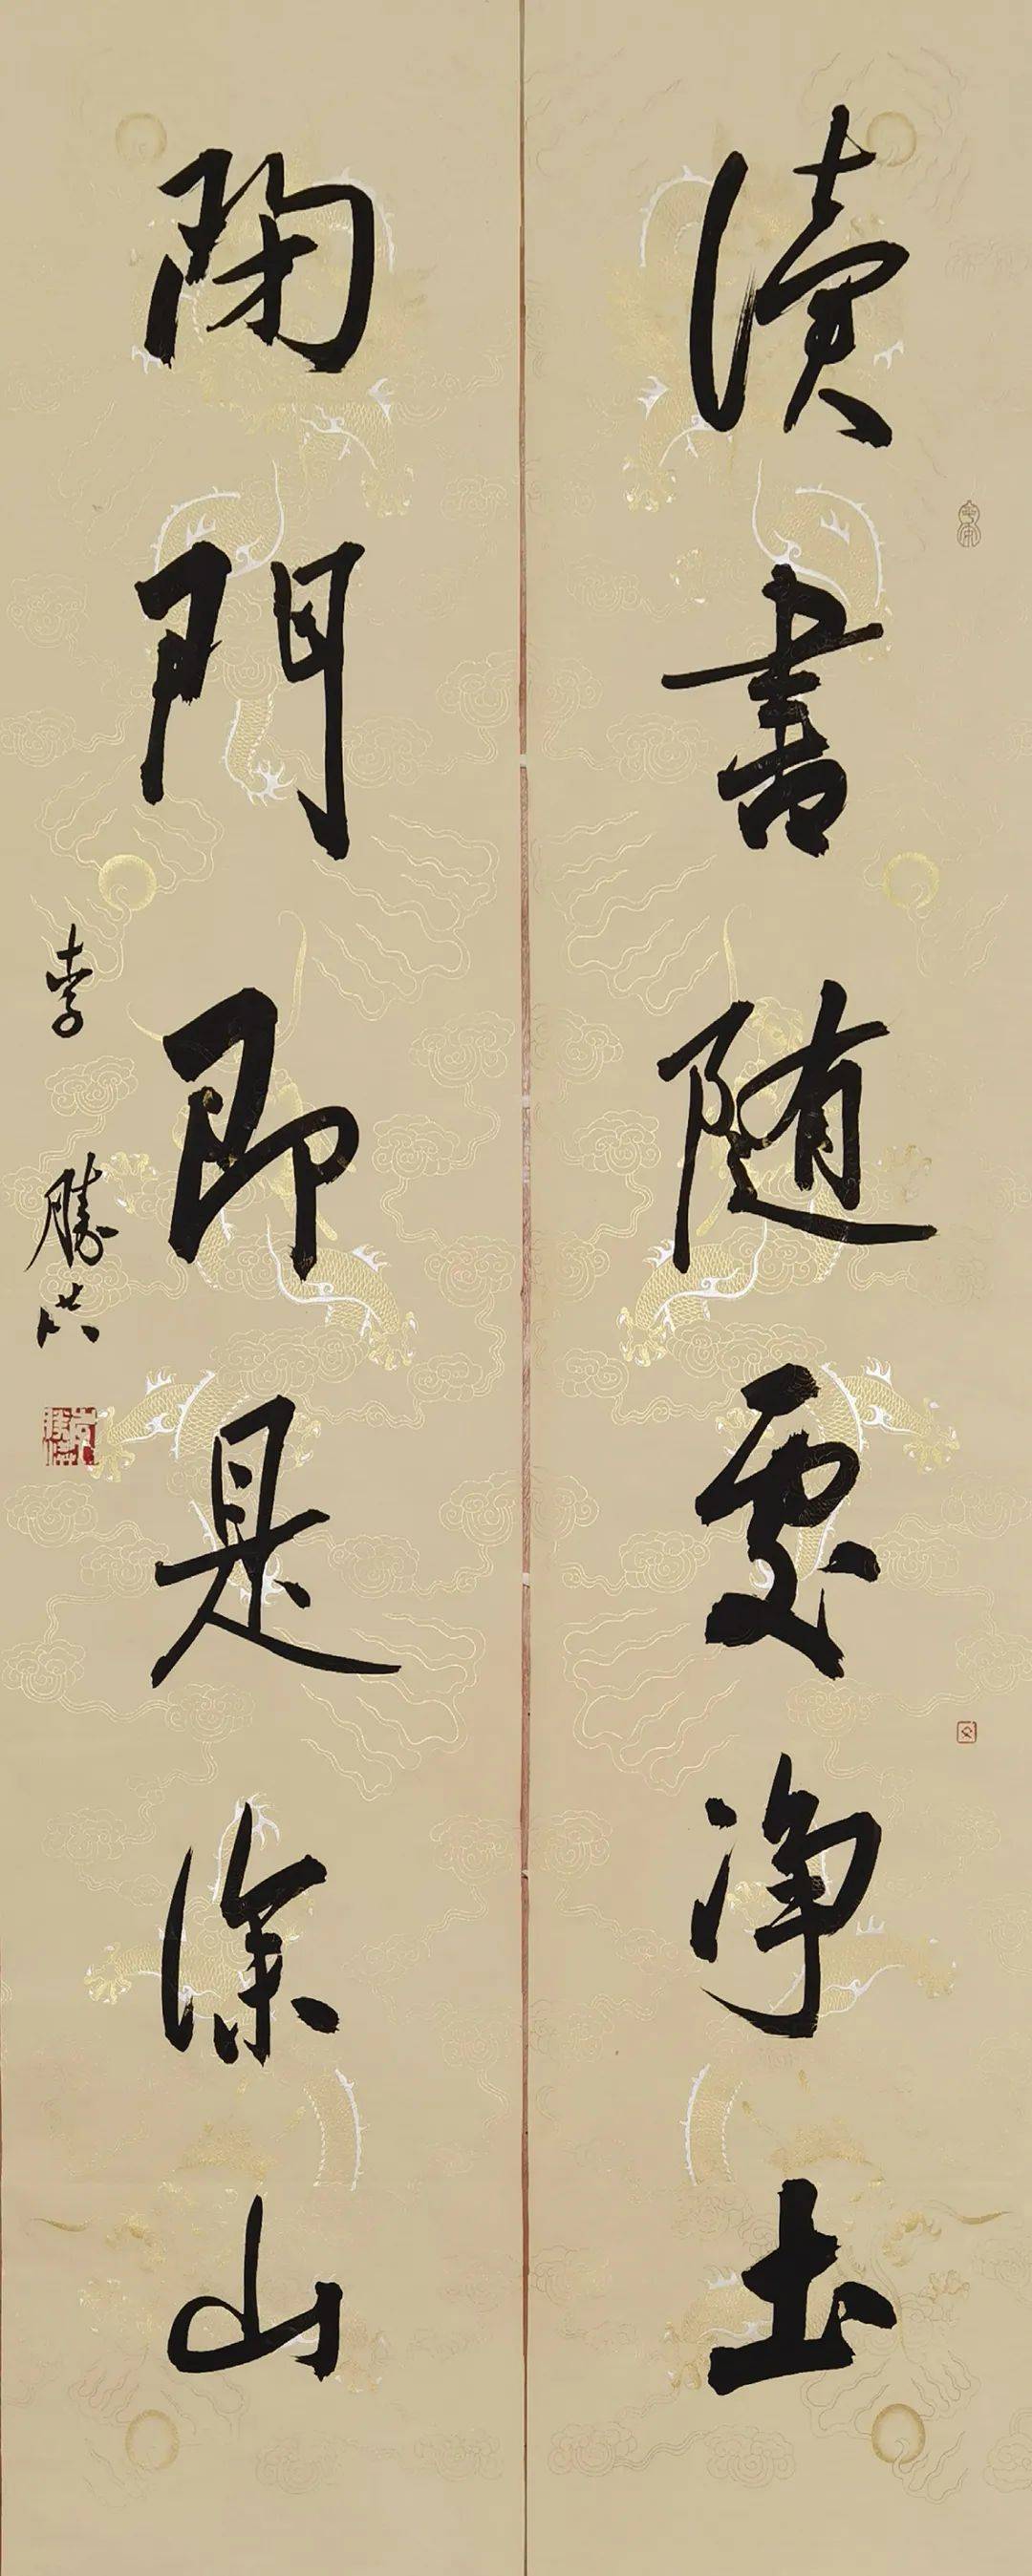 讀書随處净土
閉門即是深山
李勝洪